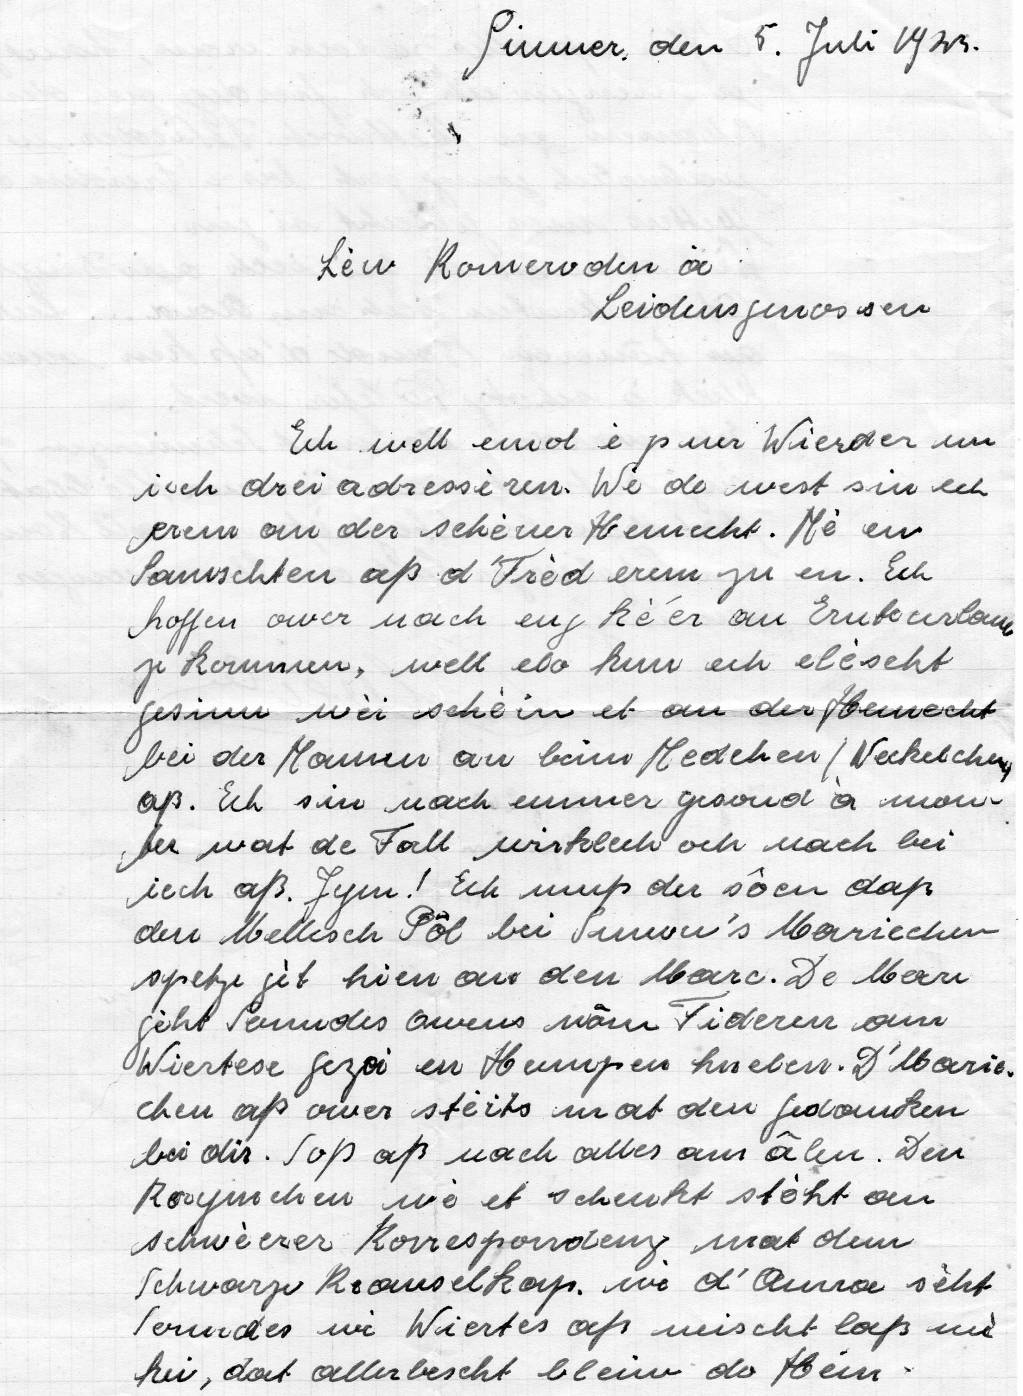 Simmer, den 5. Juli 1943.
Lèw Komeroden à
Leidensgenossen
Ech well emol è puer Wierder un
iech drei adressèren. Wè do west sin ech
erem an der schèner Hemecht. Mè en
Samschten aß d'Frèd erem zu en. Ech
hoffen awer nach eng kéer an Urlaub
ze kommen, well elo kun ech elèscht
gesinn wèi schèin et an der Hemecht
bei der Mamm an beim Medchen
aß. Ech sin nach emmer gesond à mon-
ter wat de Fall wirklech och nach bei
iech aß. Jym! Ech muß der sôen daß
den Mellisch Pôl bei Simon's Mariechen
spetze gèt hien an den Marc. De Marc
gèht Sonndes Owens mâm Fideren an
Wiertese en Hempen huelen. D'Marie-
chen aß ower stèits mat den gedanken
bei dir. Soß aß nach alles am âlen. Den
Raymchen wè et schenkt stèht an
schwèrer Korrespondenz mat dem
Schwarze Krauselkap. wè d'Anna sèht
Sonndes wè Wiertes aß neischt laß mè
hei, dat allerbescht bleiw do Hém.